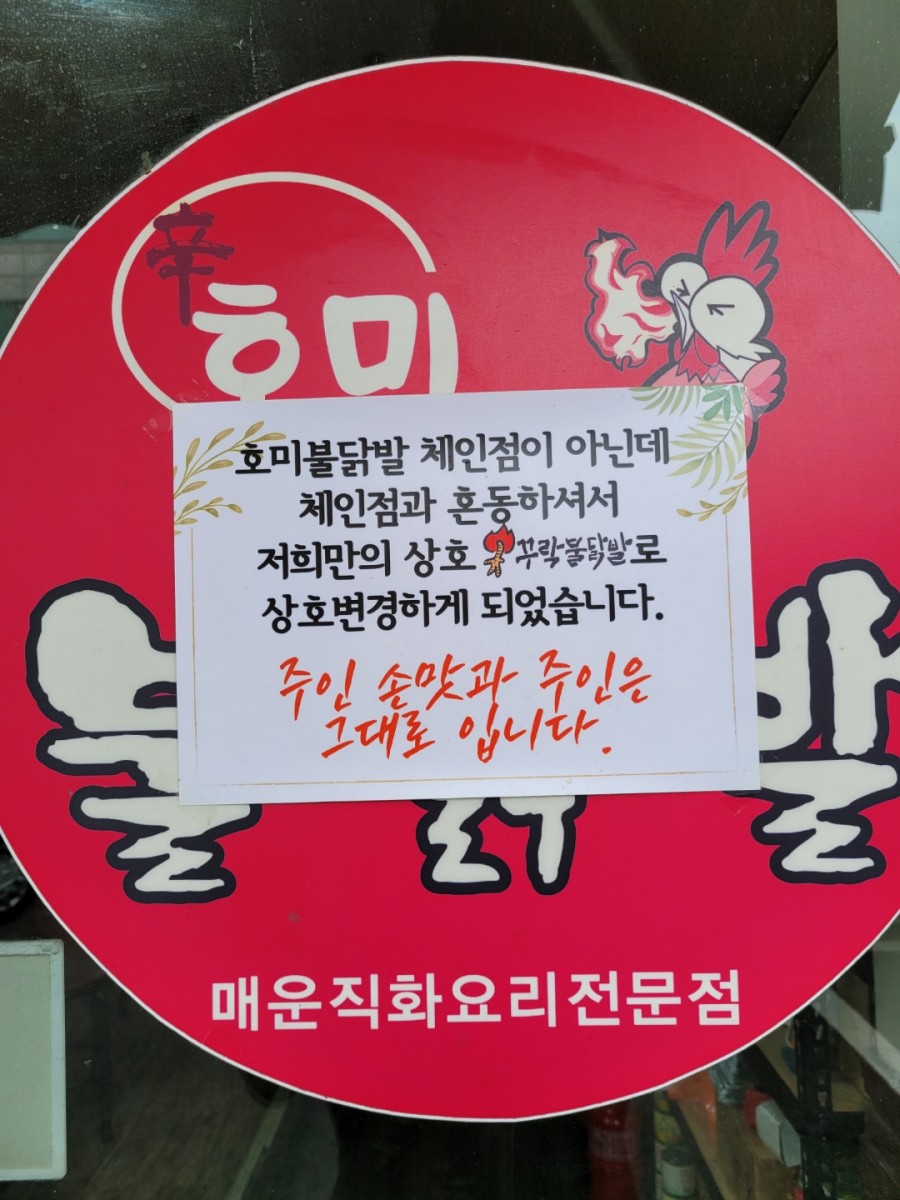 辛
호미
호미불닭발 체인점이 아닌데
체인점과 혼동하셔서
저희만의 상호 꾸락불닭발로
상호변경하게 되었습니다.
주인 손맛과 주인은
그대로 입니다.
불닭발
매운직화요리전문점